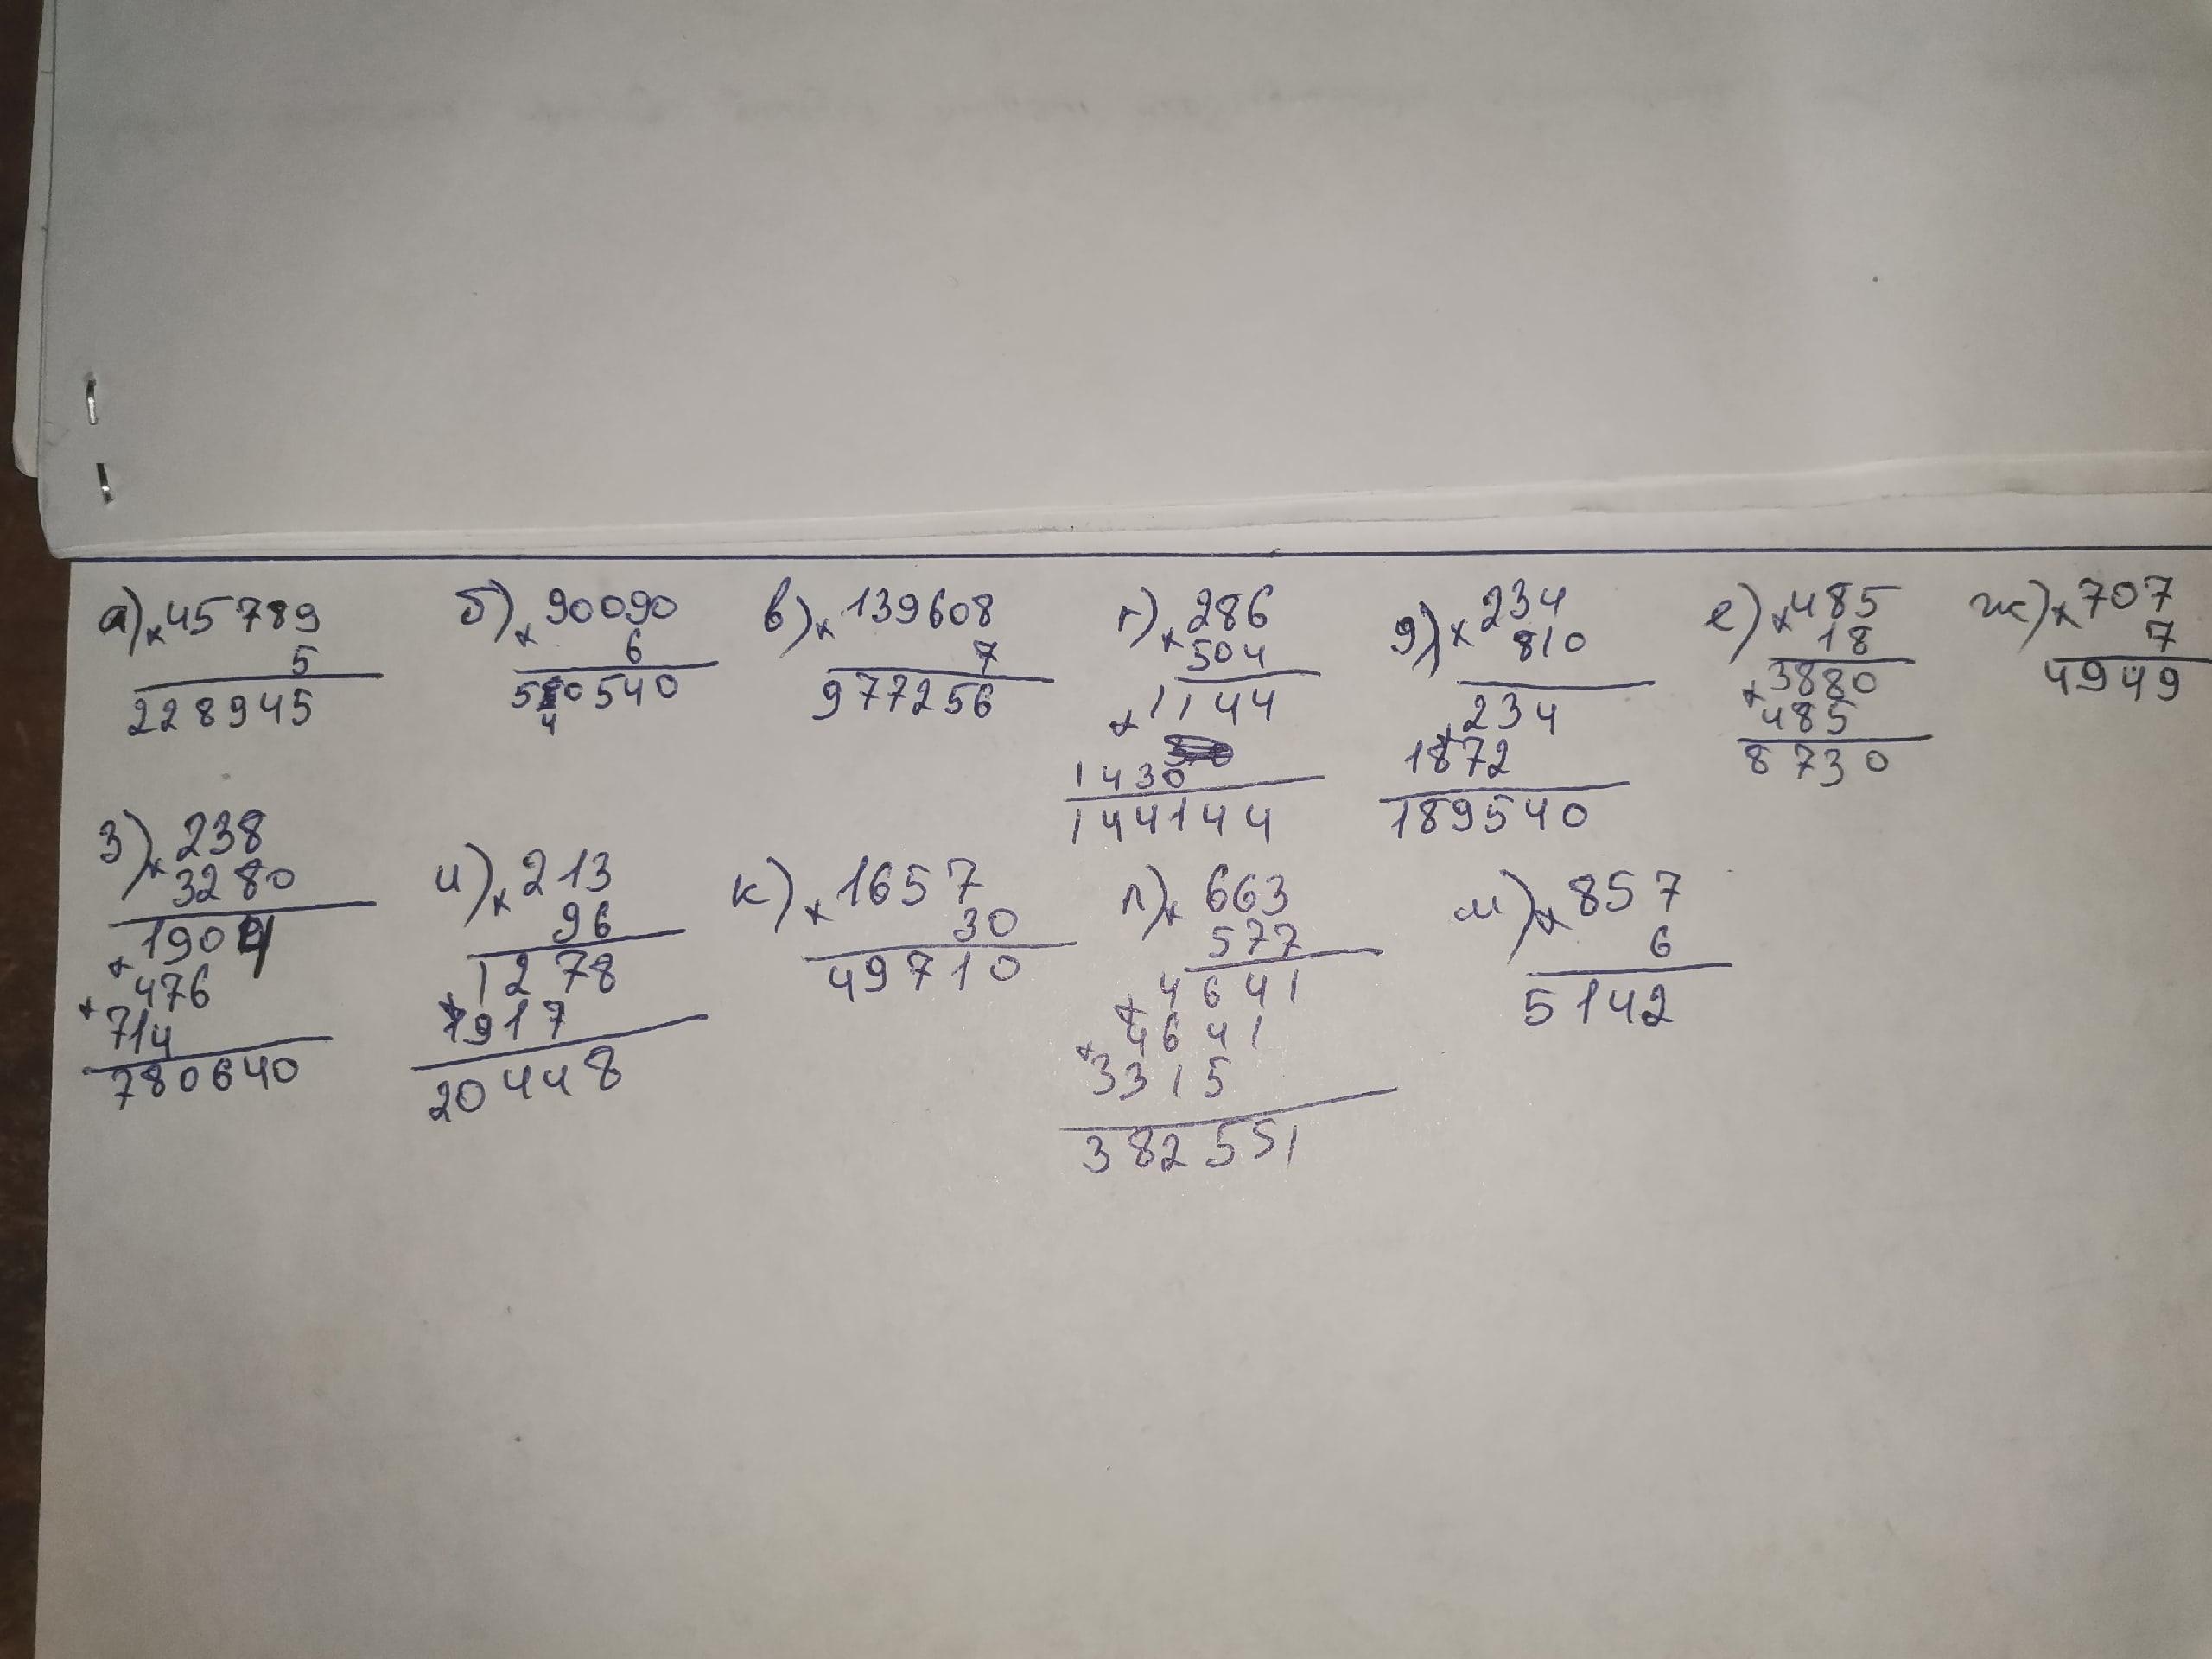 а) × 45789
5
228945
б) × 90090
6
540540
в) × 139608
7
977256
г) × 286
504
+ 1144
1430
144144
д) × 234
810
+ 234
1872
189540
е) × 485
18
+ 3880
485
8730
ж) × 707
7
4949
з) × 238
3280
+ 1904
+ 476
714
780640
и) × 213
96
+ 1278
1917
20448
к) × 1657
30
49710
л) × 663
577
+ 4641
+ 4641
3315
382551
м) × 857
6
5142